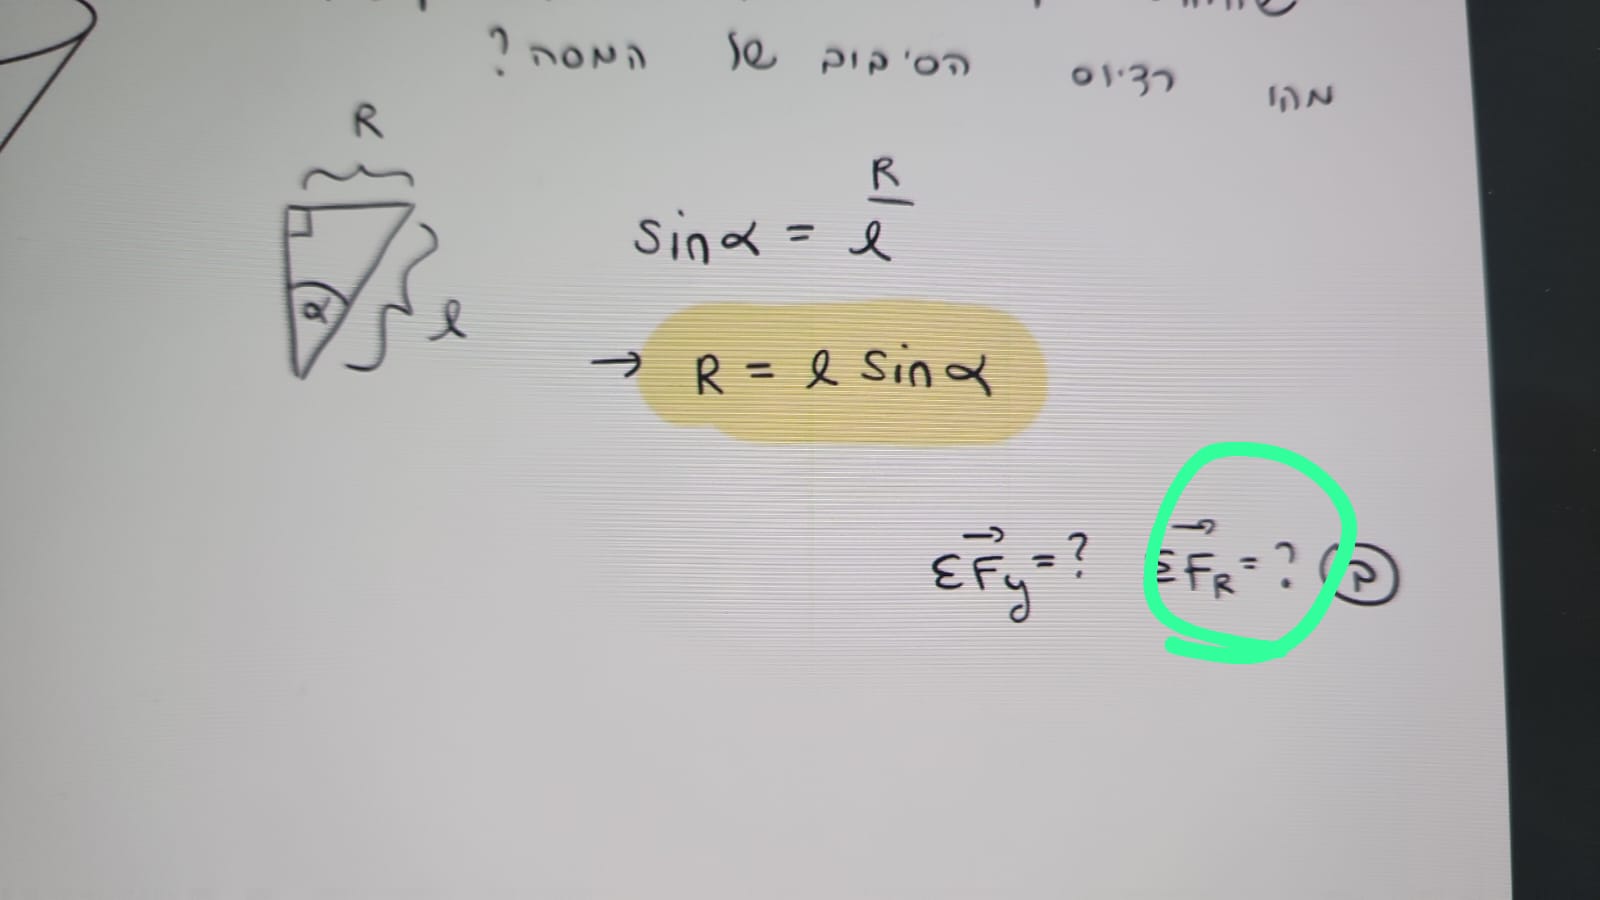 מהו רדיוס הסיבוב של המסה?
R
sinα = R/l
α
l
→ R = l sinα
ב ΣF⃗R = ? ΣF⃗y = ?